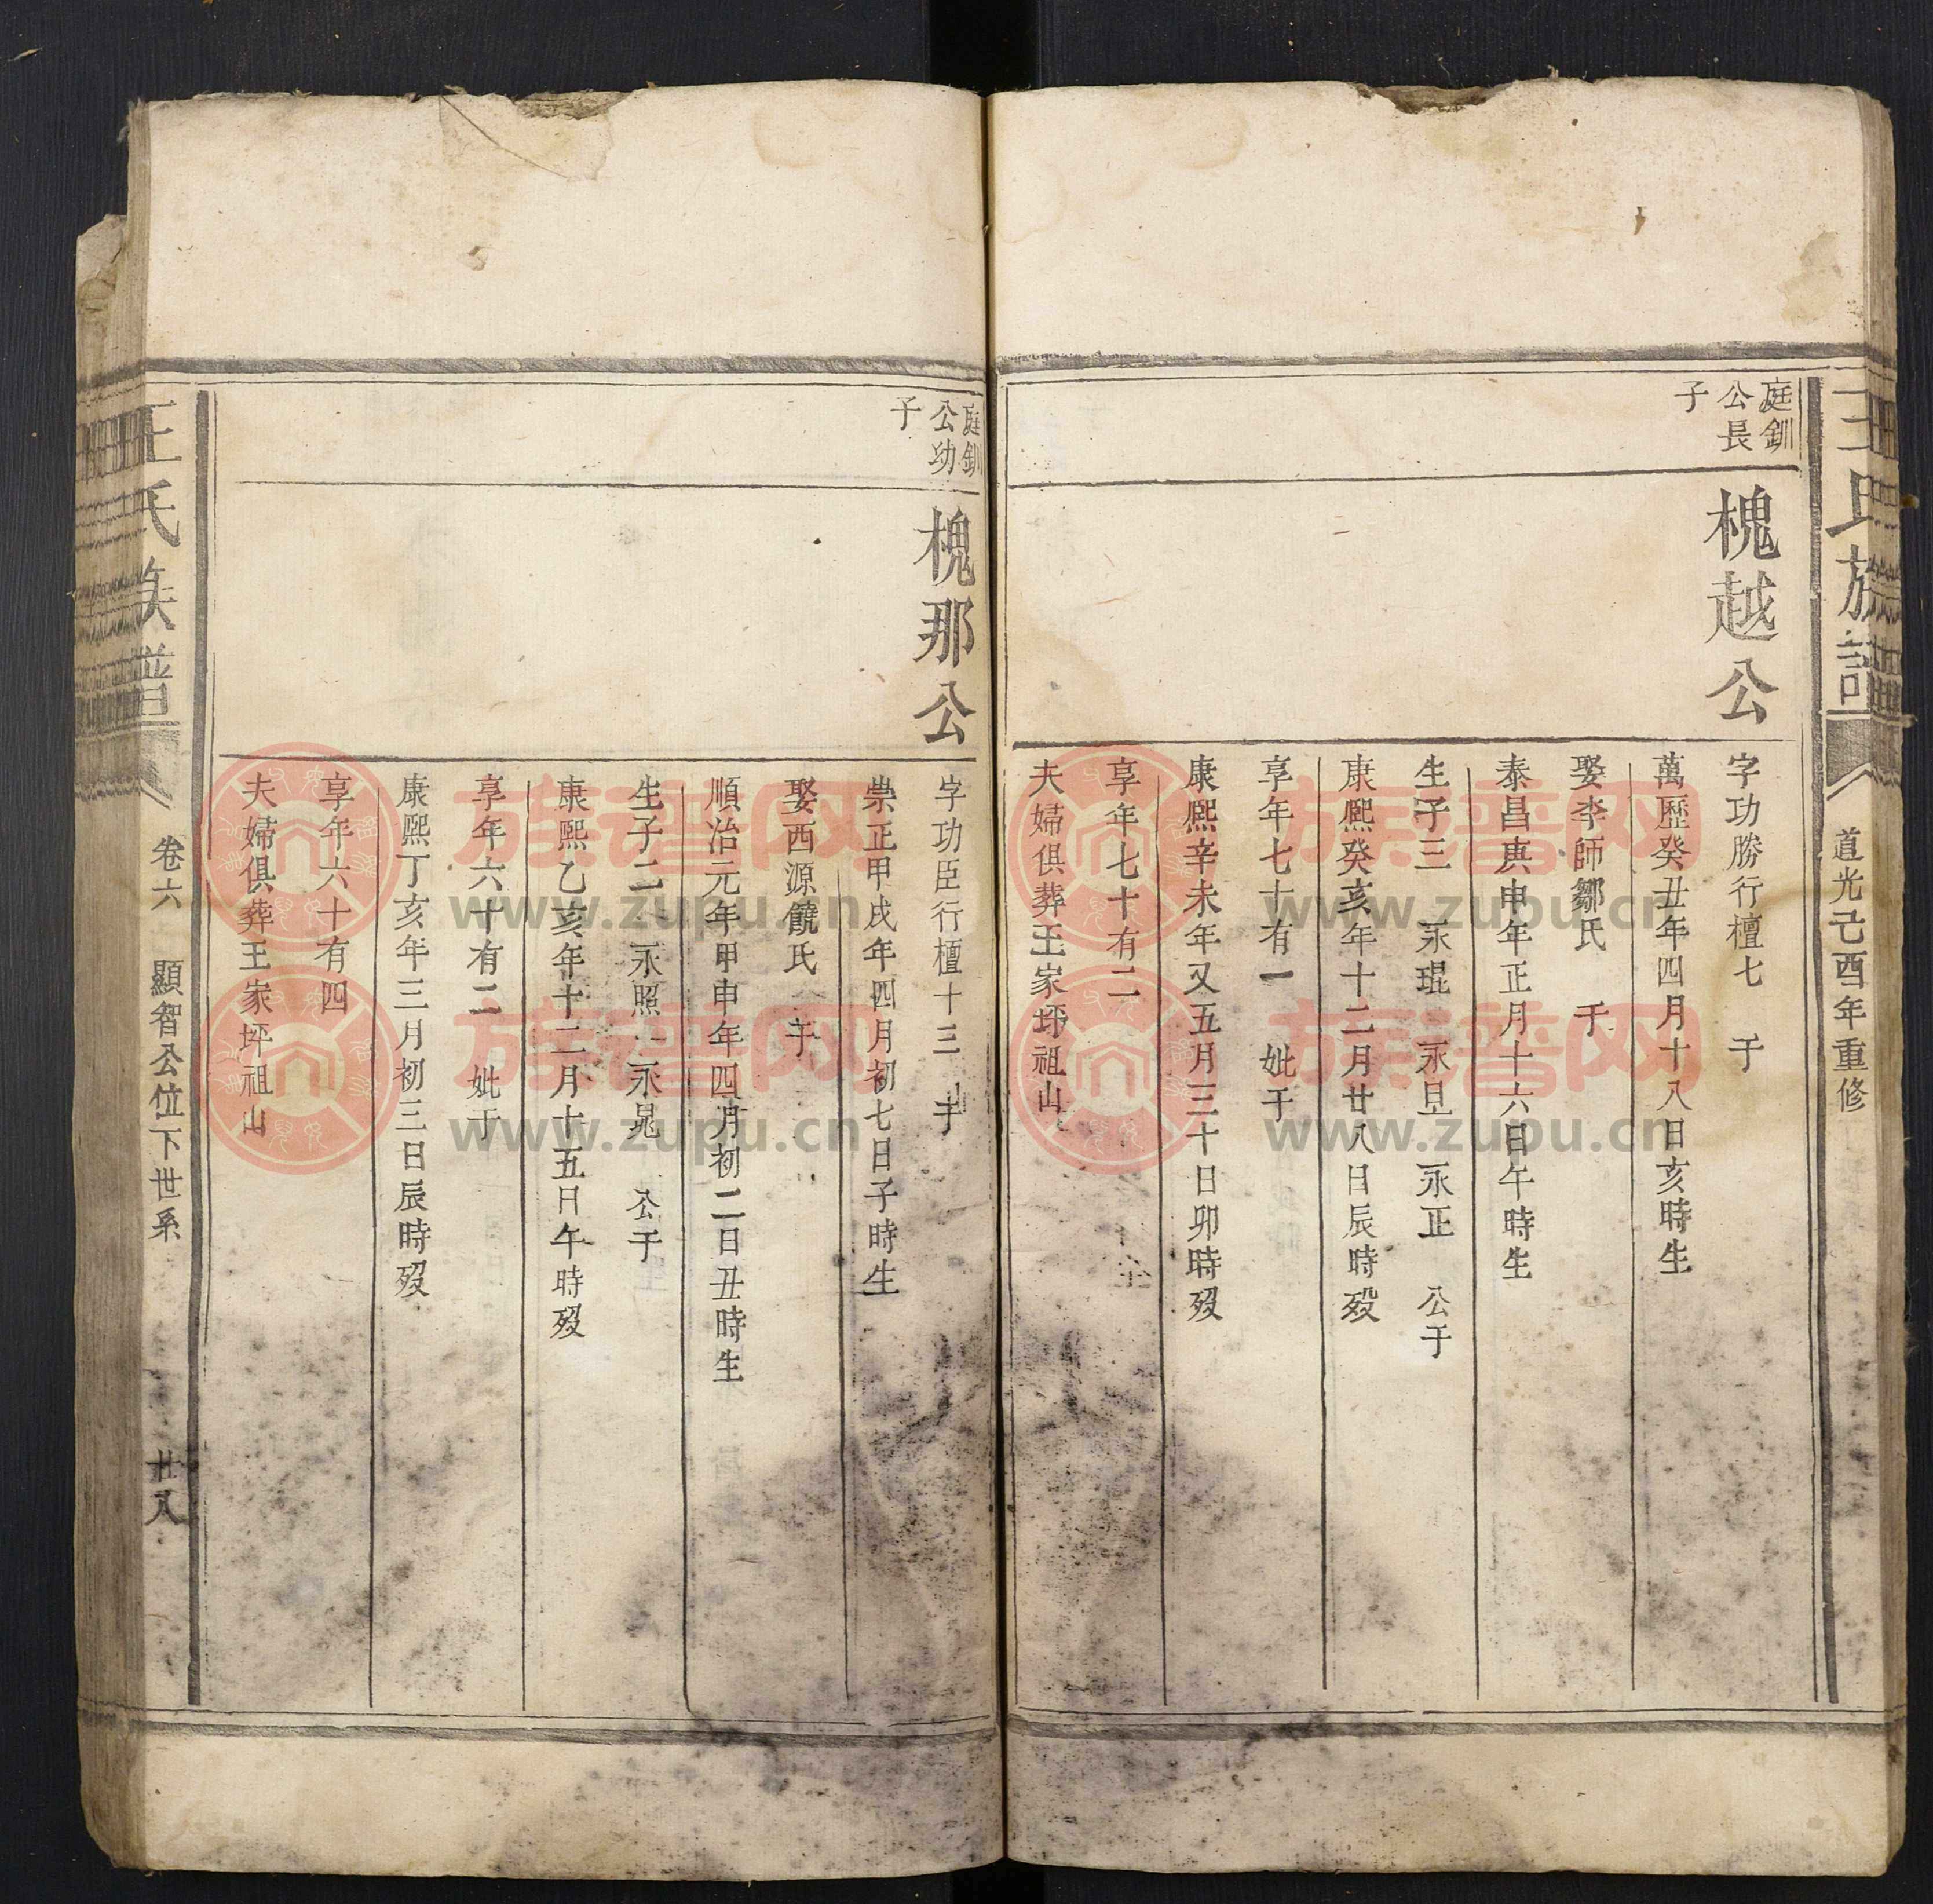 王氏族譜
道光己酉年重修
庭釧
公長
子
槐越公
字功勝行檀七 于
萬歷癸丑年四月十八日亥時生
娶李師鄒氏 于
泰昌庚申年正月十六日午時生
生子三 永琨 永昆 永正 公于
康熙癸亥年十二月廿八日辰時歿
享年七十有一 妣于
康熙辛未年又五月三十日卯時歿
享年七十有二
夫婦俱葬王家坪祖山
庭釧
公幼
子
槐那公
字功臣行檀十三 于
崇正甲戌年四月初七日子時生
娶西源饒氏 于
順治元年甲申年四月初二日丑時生
生子二 永照 永晃 公于
康熙乙亥年十二月十五日午時歿
享年六十有二 妣于
康熙丁亥年三月初三日辰時歿
享年六十有四
夫婦俱葬王家坪祖山
王氏族譜
卷六 顯智公位下世系
廿八
族谱网
www.zupu.cn
族谱网
www.zupu.cn
族谱网
www.zupu.cn
族谱网
www.zupu.cn